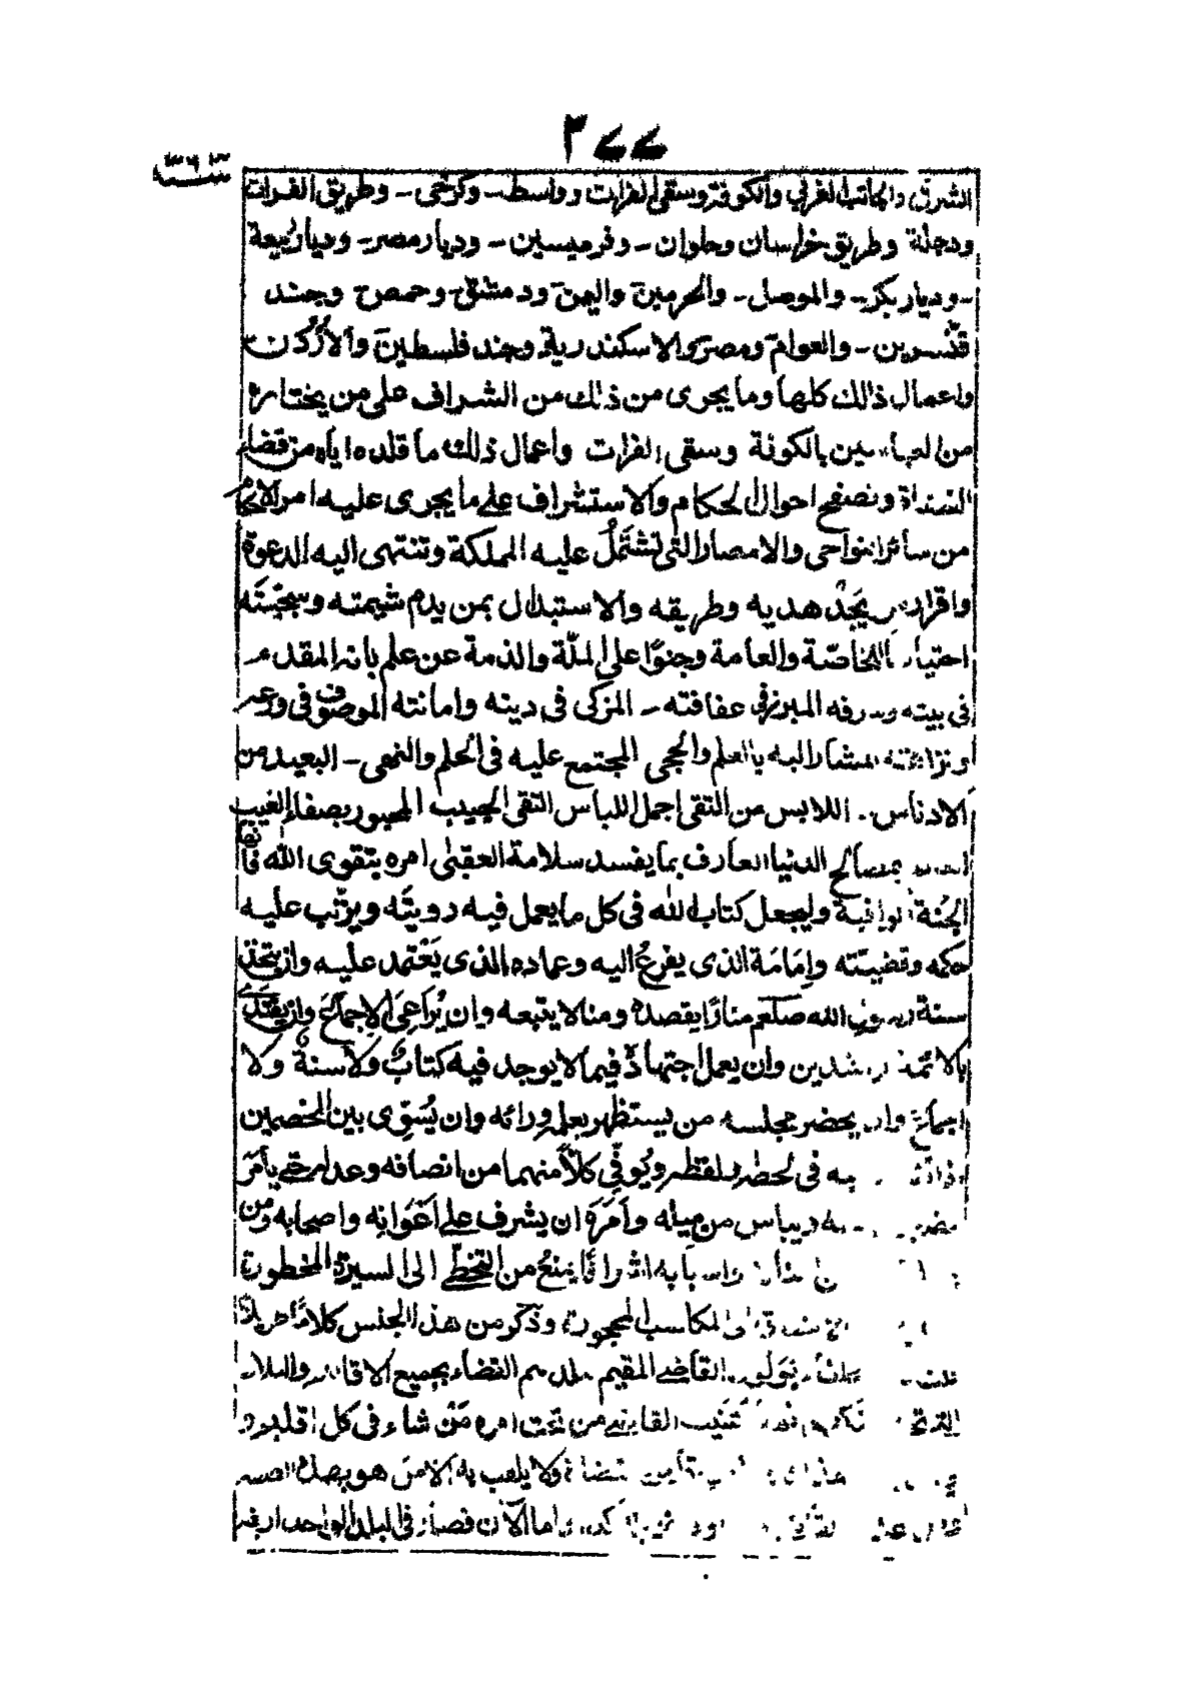 ٢٧٧
سنة ٣٦٣
الشرقى والجانب الغربي والكوفة وسقى الفرات وواسط - وكرخى - وطريق الفرات
ودجلة وطريق خراسان وحلوان - وقرميسين - وديار مصر - وديار ربيعة
- وديار بكر - والموصل - والحرمين واليمن ودمشق - وحمص وجند
قنّسرين - والعواصم ومصر والاسكندرية وجند فلسطين والأُرْدُن
واعمال ذالك كلها وما يجرى من ذلك من الشراف على من يختاره
من العباسيين بالكوفة وسقى الفرات واعمال ذلك ما قلده اياه من قضاء
القضاة وتصفح احوال الحكام والاستشراف على ما يجرى عليه امر الاحكام
من سائر النواحى والامصار التى تشتمل عليه المملكة وتنتهى اليه الدعوة
واقرار من يحمد هديه وطريقه والاستبدال بمن يذم شيمته وسجيّته
احتياطا للخاصّة والعامة وحنوّا على الملّة والذمة عن علم بانه المقدم
فى بيته وشرفه المبرز فى عفافته - المزكى فى دينه وامانته الموصوف فى ورعه
ونزاهته المشار اليه بالعلم والحجى المجتمع عليه فى الحلم والنهى - البعيد من
الادناس - اللابس من التقى اجمل اللباس النقى الجيب المحبور بصفاء الغيب
العالم بمصالح الدنيا العارف بما يفسد سلامة العقبى امره بتقوى الله فانها
الجُنة الواقية وليجعل كتاب الله فى كل ما يعمل فيه رويتَه ويرتّب عليه
حكمه وقضيته وإمَامَه الذى يفزعُ اليه وعماده الذى يَعْتمد عليه وان يتخذ
سنة رسول الله صلعم منارًا يقصده ومثالا يتبعه وان يُرَاعِىَ الاجماع وان يقتدى
بالائمة الراشدين وان يعمل اجتهاده فيما لا يوجد فيه كتابٌ ولا سنةٌ ولا
اجماعٌ وان يحضر مجلسه من يستظهر بعلمه ورائه وان يُسَوِّى بين الخصمين
اذا تقدما اليه فى لحظه ولفظه ويُوفّي كلاًّ منهما من انصافه وعدله حتى يأمَنَ
من ميله وأمَرَه ان يشرف على أعوانِه واصحابه ومن
واسبابه اشرافًا يمنعُ من التخطّي الى السيرة المحظورة
الى المكاسب المحجورة وذكر من هذا الجنس كلامًا طويلاً
قلت - كان الخلفاء يولون القاضى المقيم ببلدهم القضاء بجميع الاقاليم والبلاد
التى تحت ملكهم ثم يستنيب القاضي من تحت امره مَنْ شاء فى كل اقليم و
ولا يلقب به الا من هو بهذه الصفة
واما الآن فصار فى البلد الواحد اربعة